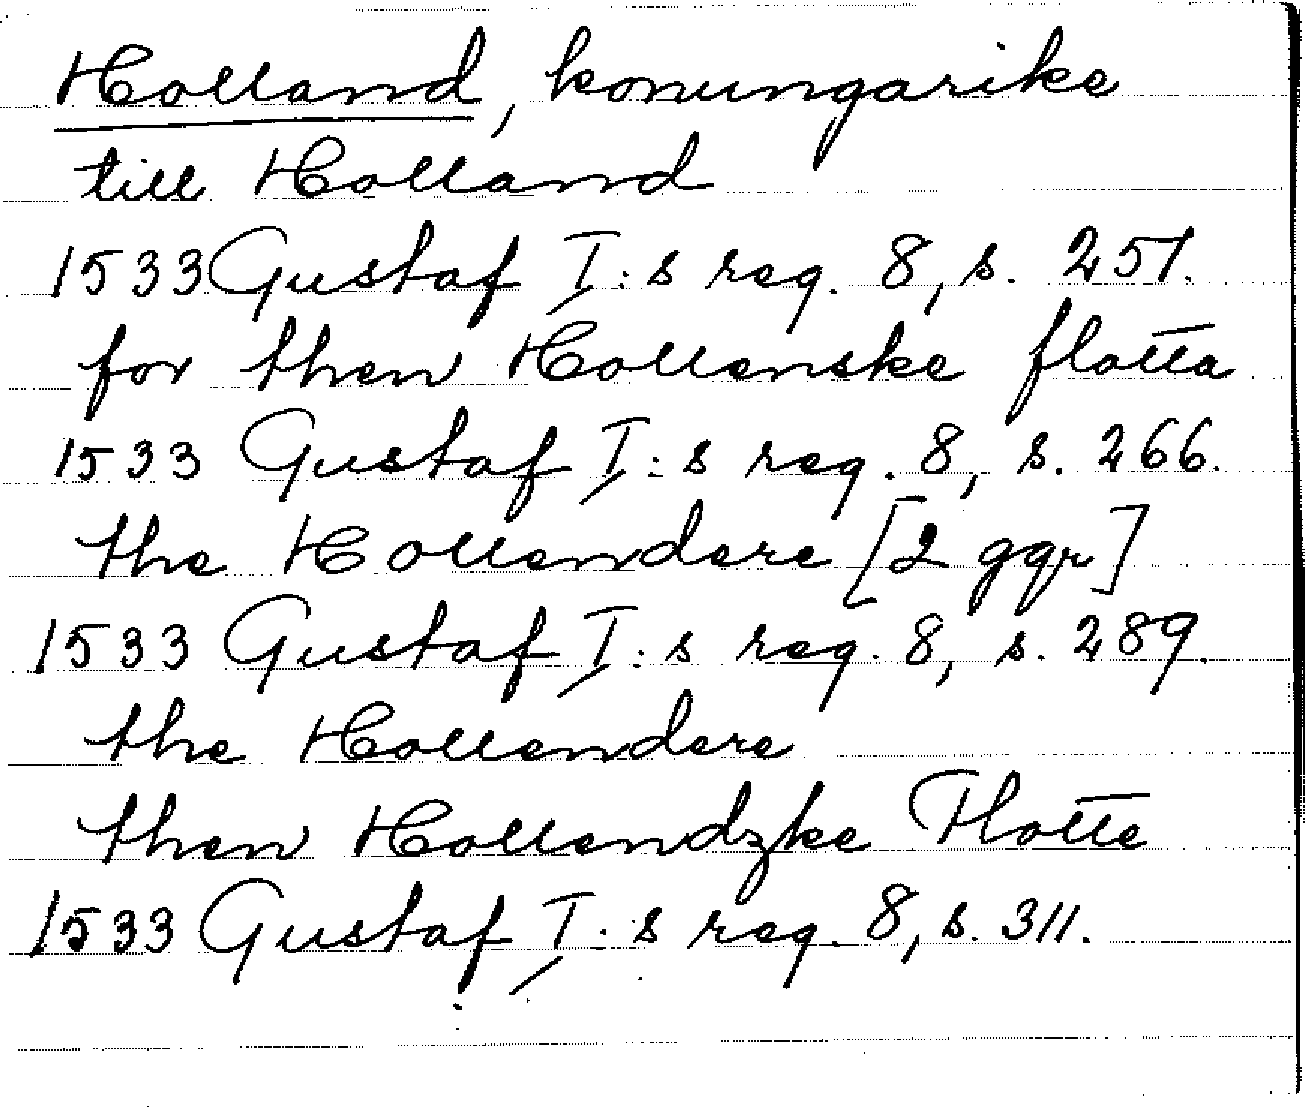 Holland, konungarike
till Holland
1533 Gustaf I:s reg. 8, s. 251.
for then Hollenske flotta
1533 Gustaf I:s reg. 8, s. 266.
the Hollendere [2 ggr]
1533 Gustaf I:s reg. 8, s. 289.
the Hollendere
then Hollendzke Flotte
1533 Gustaf I:s reg. 8, s. 311.